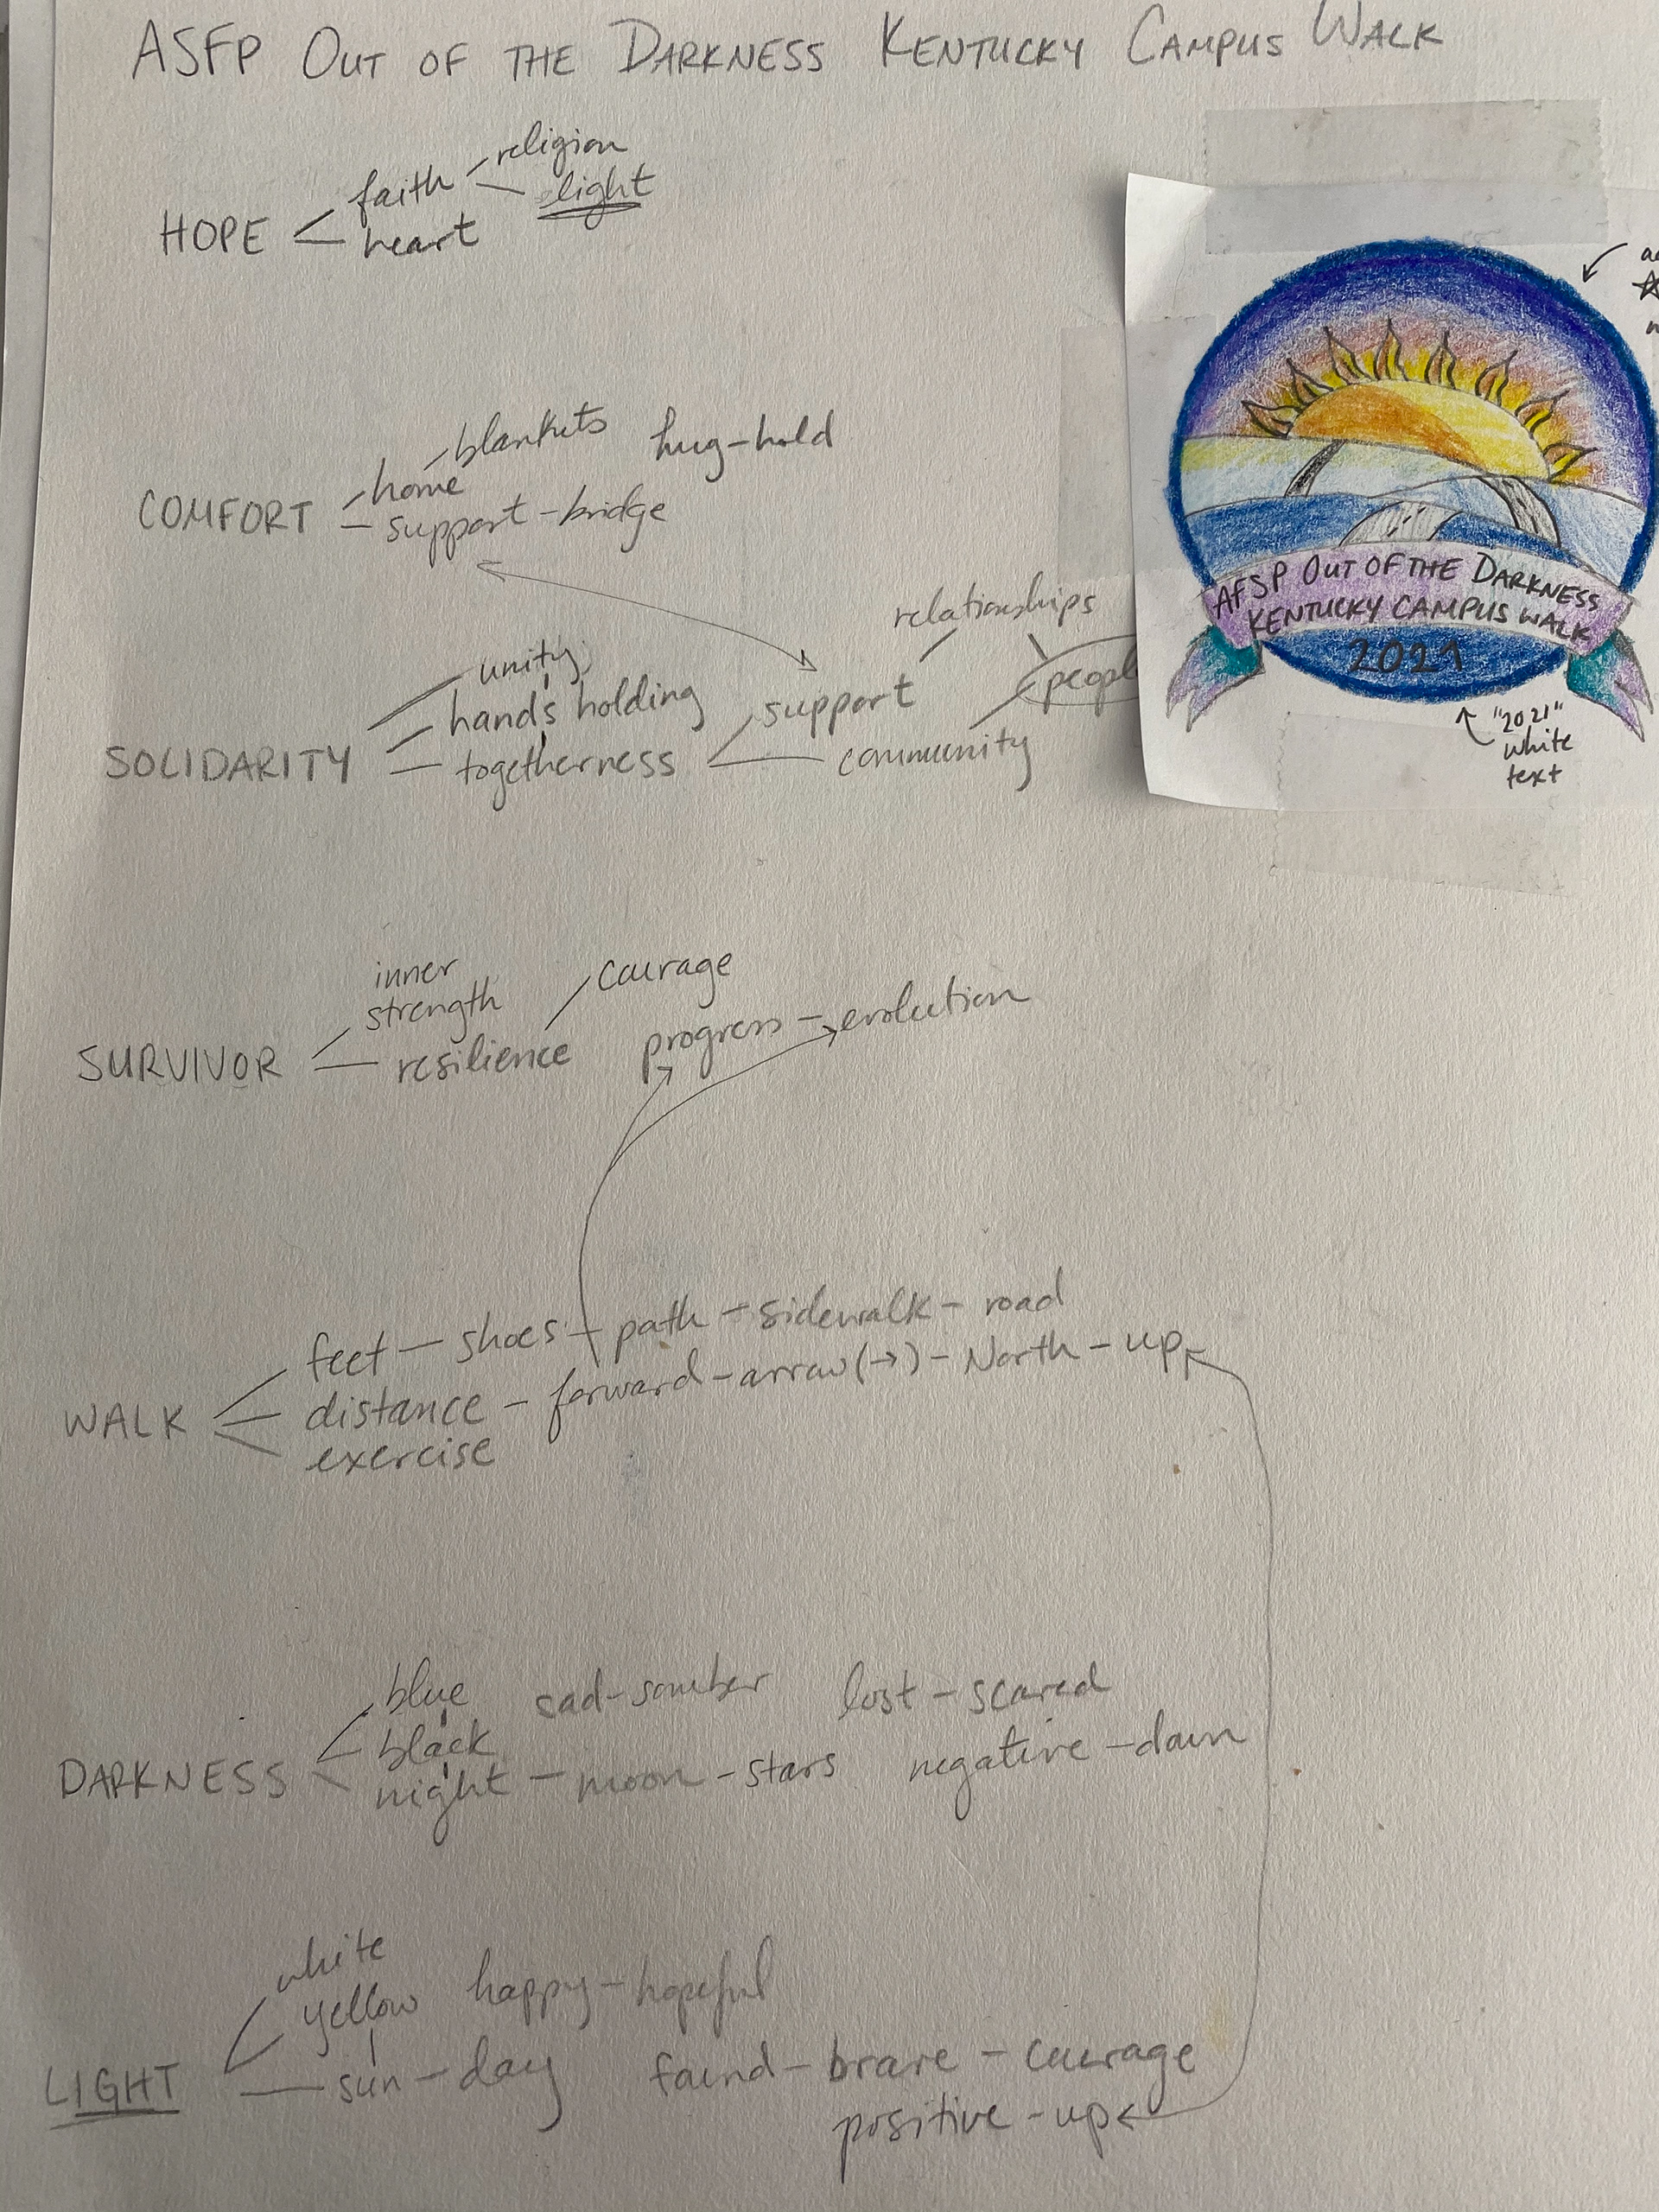 ASFP OUT OF THE DARKNESS KENTUCKY CAMPUS WALK
religion
faith
light
HOPE
heart
blankets hug-hold
home
COMFORT
support-bridge
relationships
unity
people
hands holding
support
SOLIDARITY
togetherness
community
inner
strength
courage
SURVIVOR
resilience
progress - evolution
feet - shoes - path - sidewalk - road
WALK
distance - forward - arrow (→) - North - up
exercise
blue sad-somber lost - scared
black
DARKNESS
night - moon - stars negative - down
white
yellow happy - hopeful
LIGHT
sun - day found - brave - courage
positive - up
AFSP OUT OF THE DARKNESS
KENTUCKY CAMPUS WALK
2021
"2021"
white
text